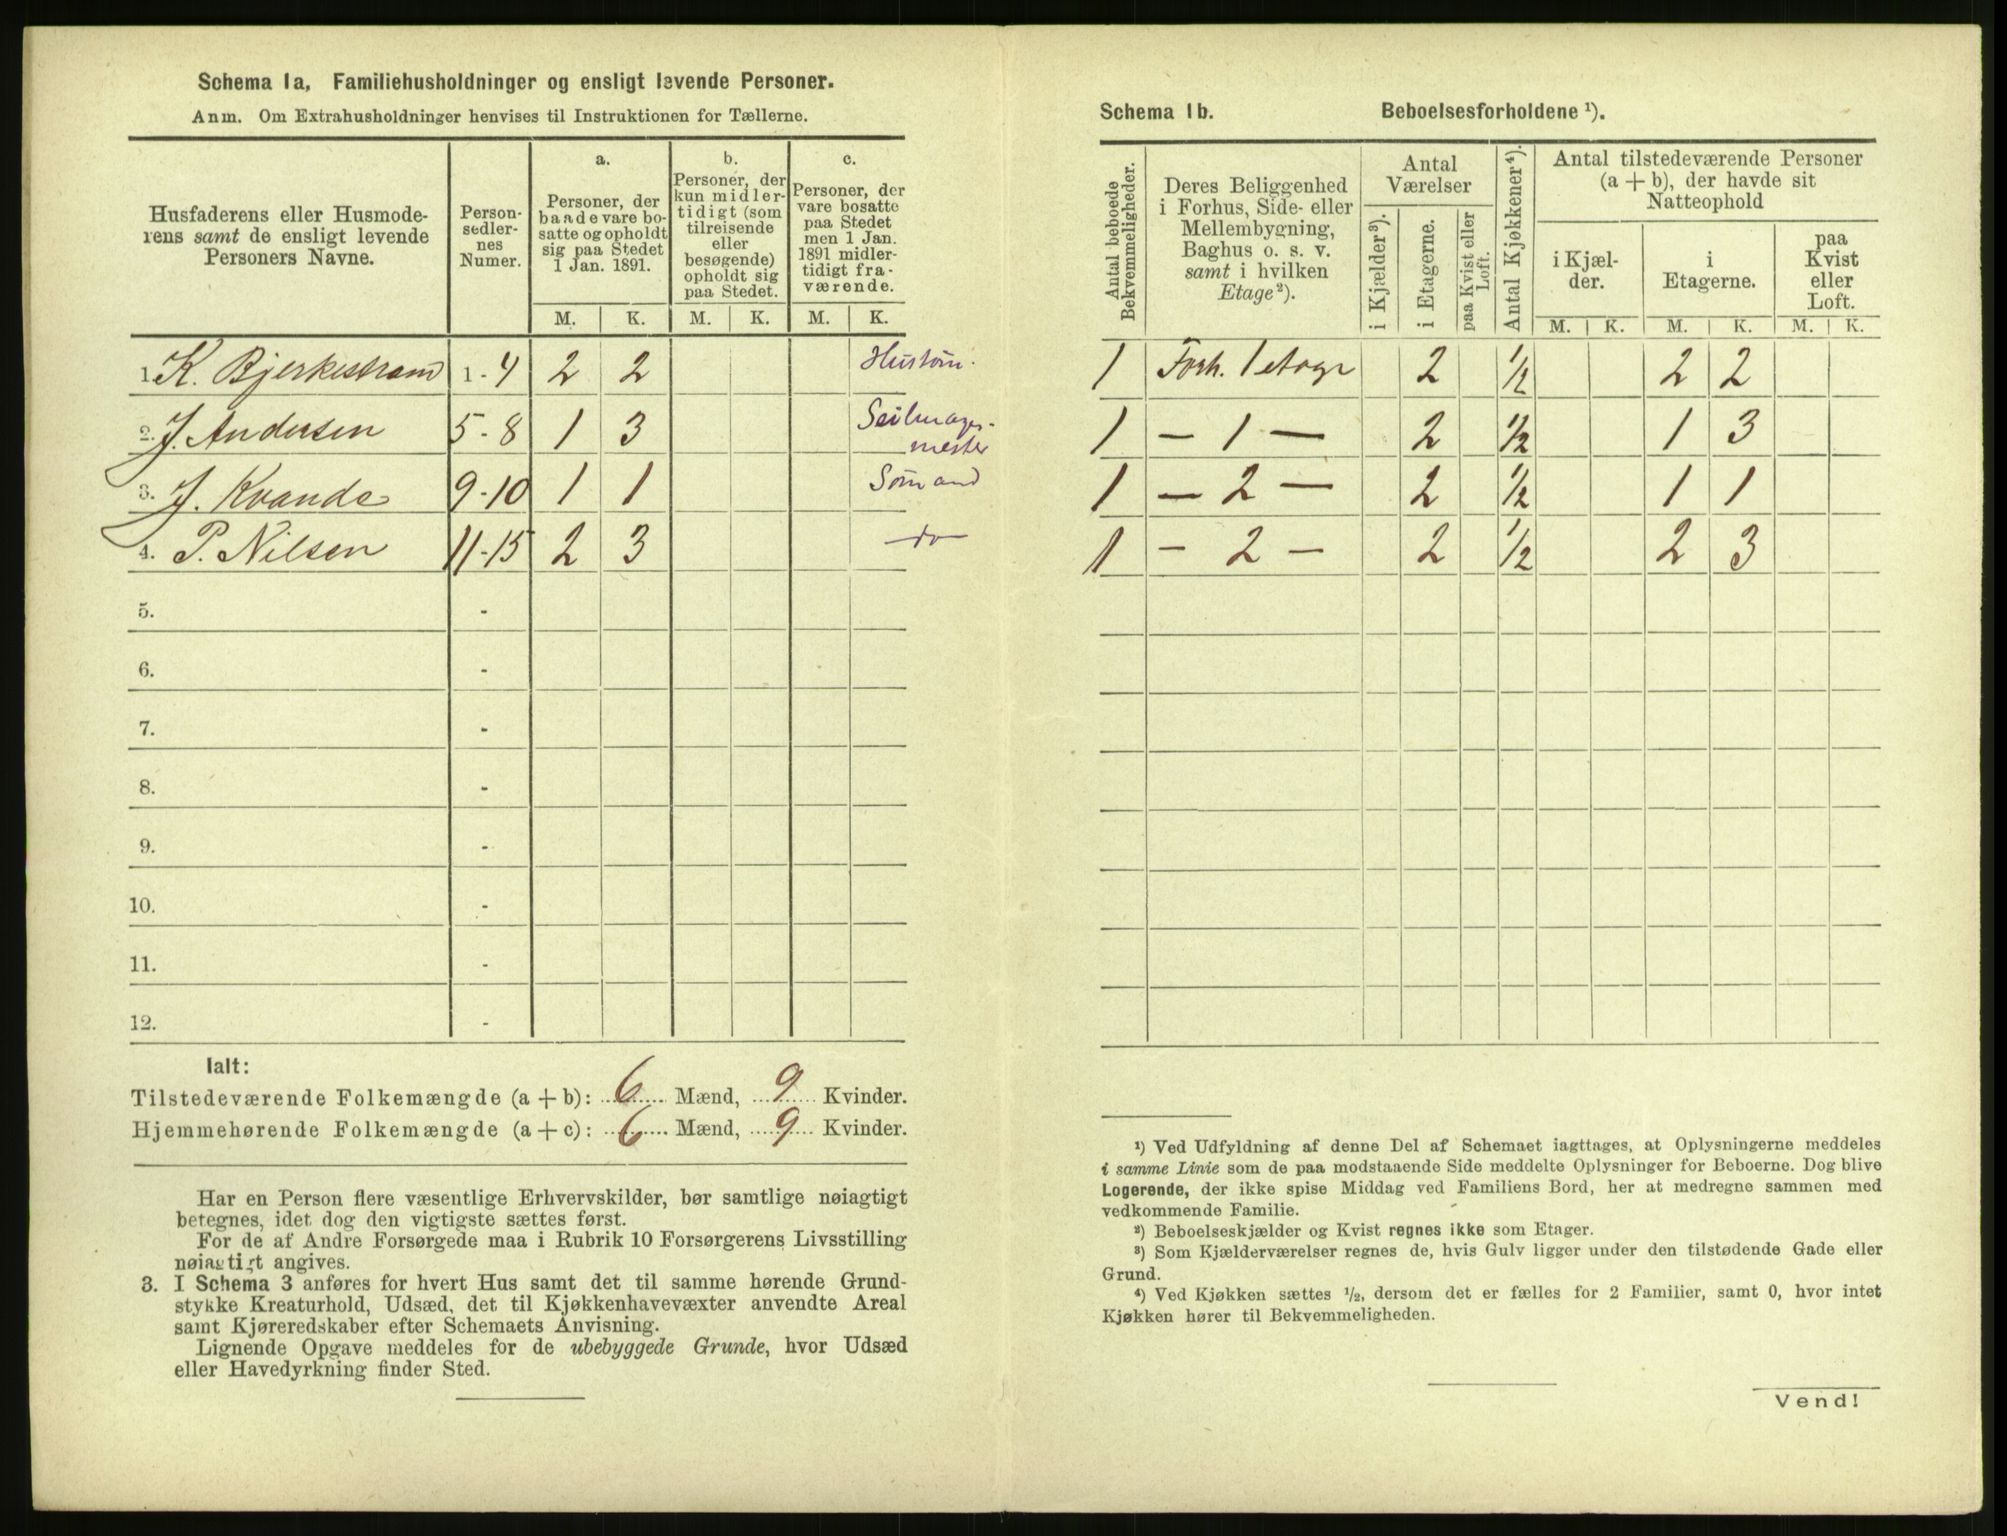 Schema 1a, Familiehusholdninger og ensligt levende Personer.
Anm. Om Extrahusholdninger henvises til Instruktionen for Tællerne.
Husfaderens eller Husmode-
rens samt de ensligt levende
Personers Navne.
Person-
sedler-
nes
Numer.
a.
Personer, der
baade vare bo-
satte og opholdt
sig paa Stedet
1 Jan. 1891.
b.
Personer, der
kun midler-
tidigt (som
tilreisende
eller
besøgende)
opholdt sig
paa Stedet.
c.
Personer, der
vare bosatte
paa Stedet
men 1 Jan.
1891 midler-
tidigt fra-
værende.
M. K. M. K. M. K.
1. K. Bjerkestrand 1-4 2 2 Hustøm.
2. J. Andersen 5-8 1 3 Seilmager-
mester
3. J. Kvande 9-10 1 1 Sømand
4. P. Nilsen 11-15 2 3 -do-
5. -
6. -
7. -
8. -
9. -
10. -
11. -
12. -
Ialt:
Tilstedeværende Folkemængde (a + b): 6 Mænd, 9 Kvinder.
Hjemmehørende Folkemængde (a + c): 6 Mænd, 9 Kvinder.
Har en Person flere væsentlige Erhvervskilder, bør samtlige nøiagtigt
betegnes, idet dog den vigtigste sættes først.
For de af Andre Forsørgede maa i Rubrik 10 Forsørgerens Livsstilling
nøiagtigt angives.
3. I Schema 3 anføres for hvert Hus samt det til samme hørende Grund-
stykke Kreaturhold, Udsæd, det til Kjøkkenhavevæxter anvendte Areal
samt Kjøreredskaber efter Schemaets Anvisning.
Lignende Opgave meddeles for de ubebyggede Grunde, hvor Udsæd
eller Havedyrkning finder Sted.
Schema 1b. Beboelsesforholdene ¹).
Antal beboede
Bekvemmeligheder.
Deres Beliggenhed
i Forhus, Side- eller
Mellembygning,
Baghus o. s. v.
samt i hvilken
Etage²).
Antal
Værelser
i Kjælder³).
i Etagerne.
paa Kvist eller
Loft.
Antal Kjøkkener⁴).
Antal tilstedeværende Personer
(a + b), der havde sit
Natteophold
i Kjæl-
der.
i
Etagerne.
paa
Kvist
eller
Loft.
M. K. M. K. M. K.
1 Forh. 1 etage 2 1/2 2 2
1 - 1 - 2 1/2 1 3
1 - 2 - 2 1/2 1 1
1 - 2 - 2 1/2 2 3
¹) Ved Udfyldning af denne Del af Schemaet iagttages, at Oplysningerne meddeles
i samme Linie som de paa modstaaende Side meddelte Oplysninger for Beboerne. Dog blive
Logerende, der ikke spise Middag ved Familiens Bord, her at medregne sammen med
vedkommende Familie.
²) Beboelseskjælder og Kvist regnes ikke som Etager.
³) Som Kjælderværelser regnes de, hvis Gulv ligger under den tilstødende Gade eller
Grund.
⁴) Ved Kjøkken sættes ¹/₂, dersom det er fælles for 2 Familier, samt 0, hvor intet
Kjøkken hører til Bekvemmeligheden.
Vend!